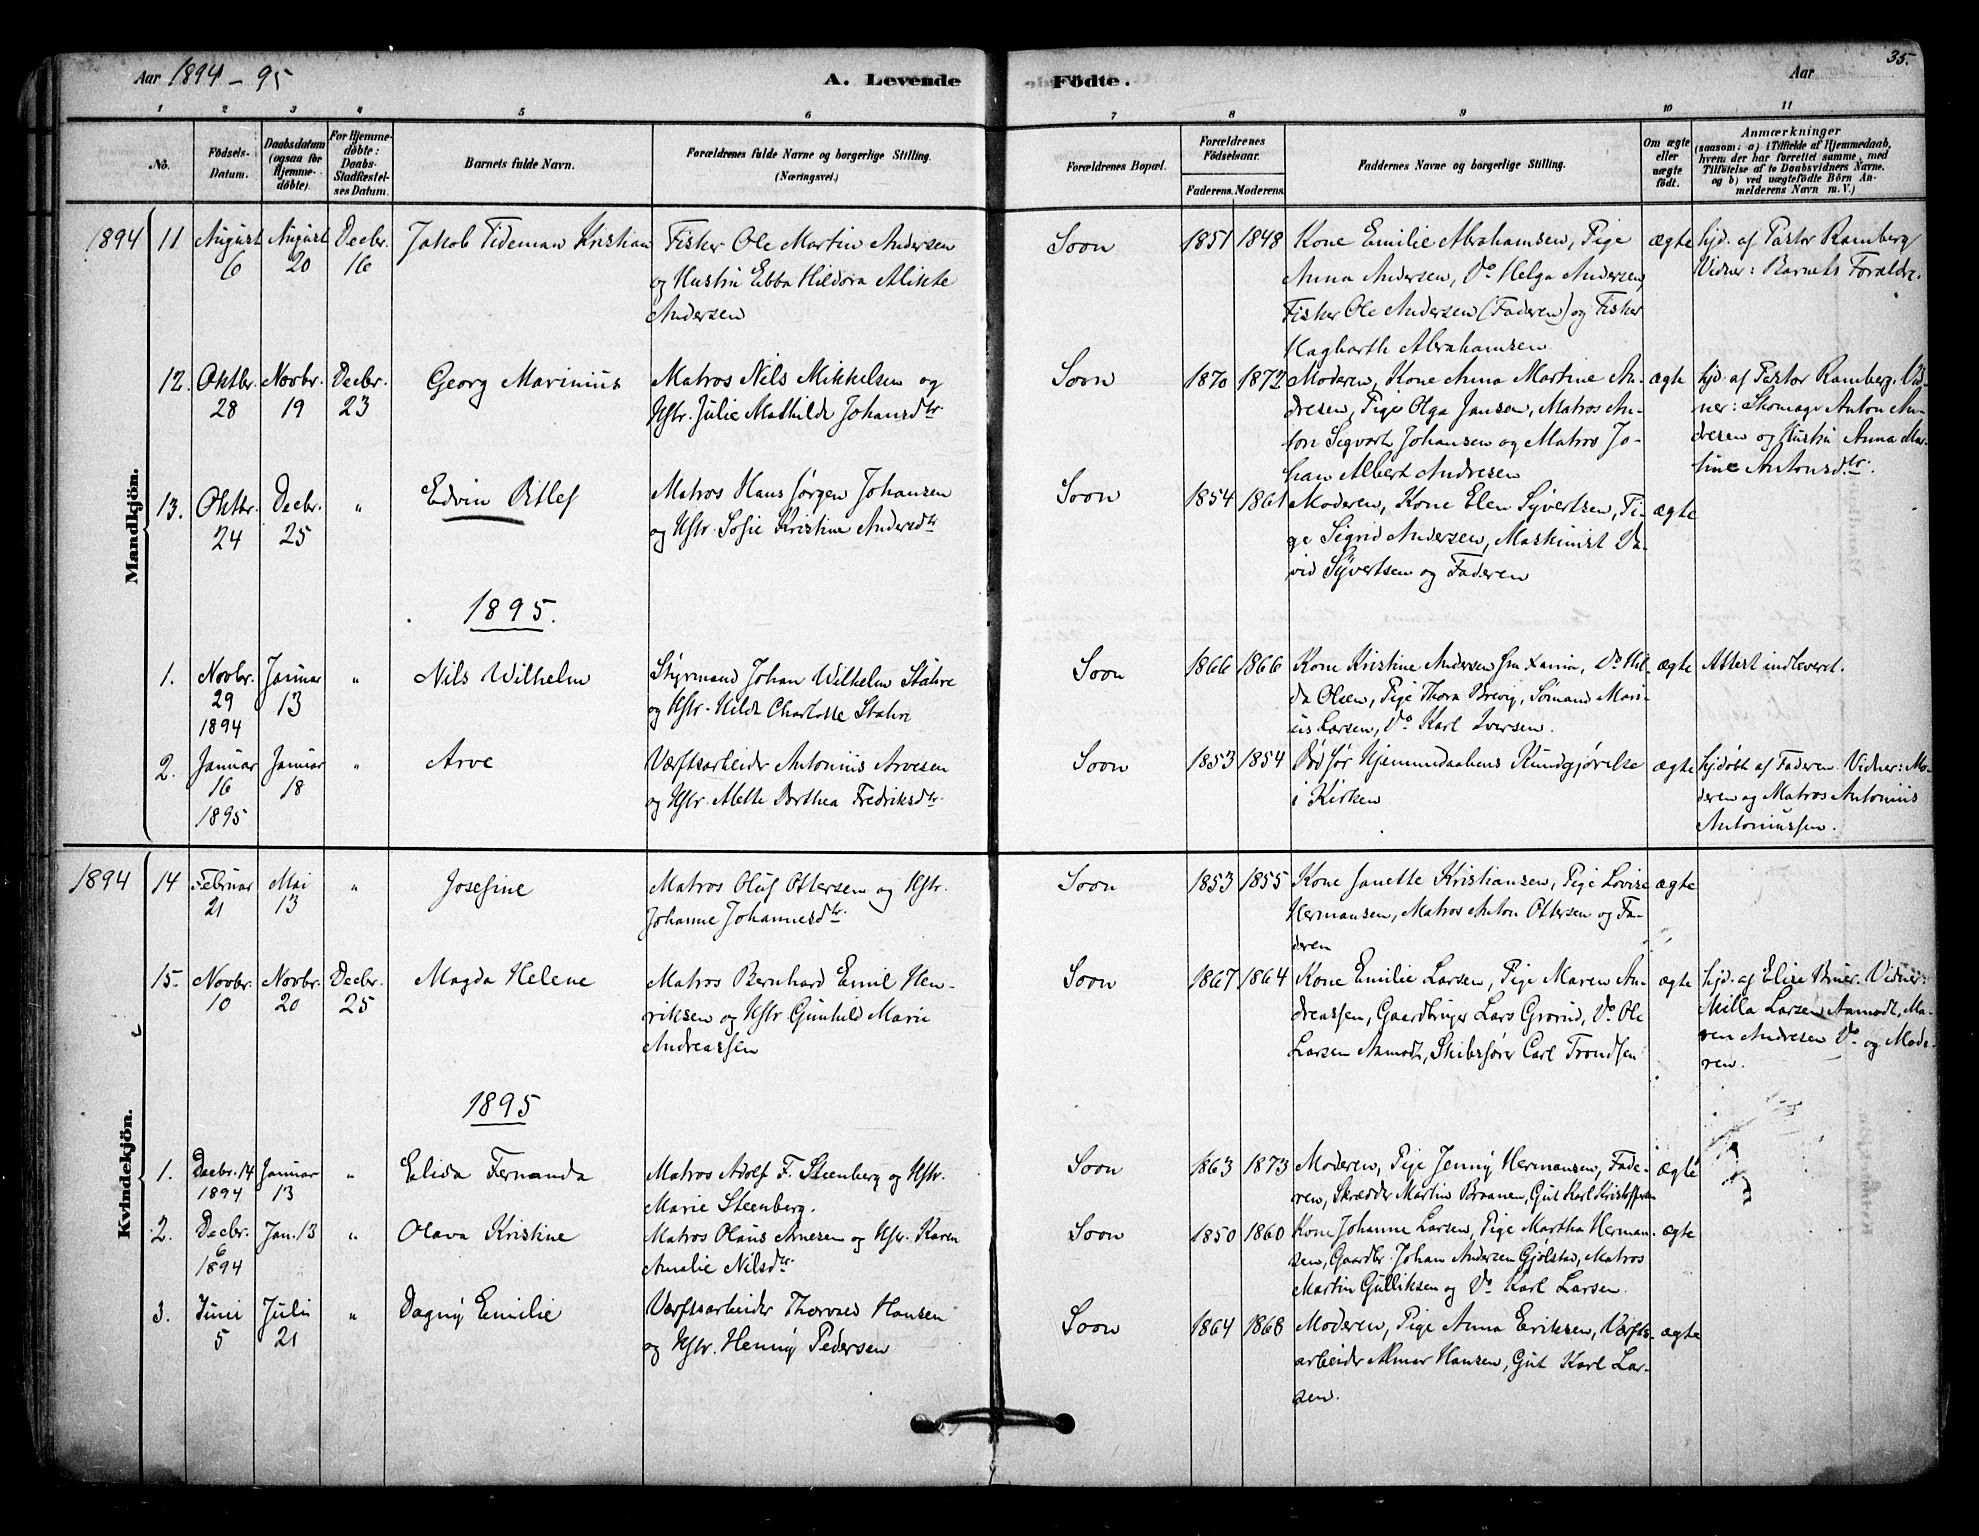 35.
Aar 1894 - 95
A. Levende
Födte.
Aar
1 2 3 4 5 6 7 8 9 10 11
No.
Födsels-Datum.
Daabsdatum (ogsaa for Hjemme-döbte).
For Hjemme-döbte: Daabs-Stadfæstel-ses Datum.
Barnets fulde Navn.
Forældrenes fulde Navne og borgerlige Stilling. (Næringsvei.)
Forældrenes Bopæl.
Forældrenes Födselsaar.
Faderens. Moderens.
Faddernes Navne og borgerlige Stilling.
Om ægte eller uægte födt.
Anmærkninger
(saasom: a) i Tilfælde af Hjemmedaab,
hvem der har forrettet samme, med
Tilföielse af to Daabsvidners Navne.
og b) ved uægtefödte Börn An-
melderens Navn m. V.)
Mandkjön.
1894 11 August 6 August 20 Decbr. 16 Jakob Tideman Kristian
Fisker Ole Martin Andersen
og Hustru Ebba Hildora Mikke
Andersen
Soon 1851 1848
Kone Emilie Abrahamsen, Pige
Anna Andersen, Do Helga Andersen,
Fisker Ole Andersen (Faderen) og Fisker
Hagbarth Abrahamsen
ægte
hjd. af Pastor Ramberg
Vidner: Barnets Forældre.
12. Oktbr. 28 Novbr. 19 Decbr. 23 Georg Marinius
Matros Nils Mikkelsen og
Hstr. Julie Mathilde Johansdtr
Soon 1870 1872
Moderen, Kone Anna Martine An-
dresen, Pige Olga Jansen, Matros An-
ton Sigvart Johansen og Matros Jo-
han Albert Andresen
ægte
hjd. af Pastor Ramberg. Vid-
ner: Skomager Anton An-
dresen og Hustru Anna Mar-
tine Antonsdtr.
13. Oktbr. 24 Decbr. 25 " Edvin Ditlef
Matros Hans Jørgen Johansen
og Hstr. Sofie Kristine Andersdtr
Soon 1854 1861
Moderen, Kone Elen Syvertsen, Pi-
ge Sigrid Andersen, Maskinist Da-
vid Syvertsen og Faderen
ægte
1895.
1. Novbr. 29 1894 Januar 13 " Nils Wilhelm
Styrmand Johan Wilhelm Stahre
og Hstr. Hilda Charlotte Stahre
Soon 1866 1866
Kone Kristine Andersen, Do Hil-
da Olsen, Pige Thora Brevig, Sømand Mari-
us Larsen, Do Karl Iversen.
ægte
Attest indleveret.
2. Januar 16 1895 Januar 18 " Arve
Værftsarbeider Antonius Arvesen
og Hstr. Mette Dorthea Fredriksdtr.
Soon 1853 1854
Død før Hjemmedaabens Kundgjørelse
i Kirken
ægte
hjdøbt af Faderen. Vidner: Mo-
deren og Matros Antonius
Antoniussen.
Kvindekjön.
1894 14 Februar 21 Mai 13 " Josefine
Matros Oluf Ottersen og Hstr.
Johanne Johannesdtr.
Soon 1853 1855
Kone Janette Kristiansen, Pige Lovise
Hermansen, Matros Anton Ottersen og Fa-
deren
ægte
15. Novbr. 10 Novbr. 20 Decbr. 25 Magda Helene
Matros Bernhard Emil Hen-
riksen og Hstr Gunhild Marie
Andreassen
Soon 1867 1864
Kone Emilie Larsen, Pige Maren An-
dreassen, Gaardbruger Lars Grorud, Do Ole
Larsen Aamodt, Skibsfører Carl Trondsen
ægte
hjd. af Elise Bruer. Vidner:
Milla Larsen Aamodt, Ma-
ren Andresen Do og Mode-
ren.
1895
1. Decbr. 14 1894 Januar 13 " Elida Fernanda
Matros Adolf F. Steenberg og Hstr.
Marie Steenberg.
Soon 1863 1873
Moderen, Pige Jenny Hermansen, Fade-
ren, Skrædder Martin Braanen, Gut Karl Kristoffersen
ægte
2. Decbr. 6 1894 Jan. 13 " Olava Kristine
Matros Olaus Arnesen og Hstr. Karen
Amalie Nilsdtr.
Soon 1850 1860
Kone Johanne Larsen, Pige Martha Herman-
sen, Gaardbr. Johan Andersen Gjølstad, Matros
Martin Gulliksen og Do Karl Larsen.
ægte
3. Juni 5 Juli 21 " Dagny Emilie
Værftsarbeider Thorvald Hansen
og Hstr. Henny Pedersen
Soon 1864 1868
Moderen, Pige Anna Eriksen, Værfts-
arbeider Almar Hansen, Gut Karl Lar-
sen.
ægte